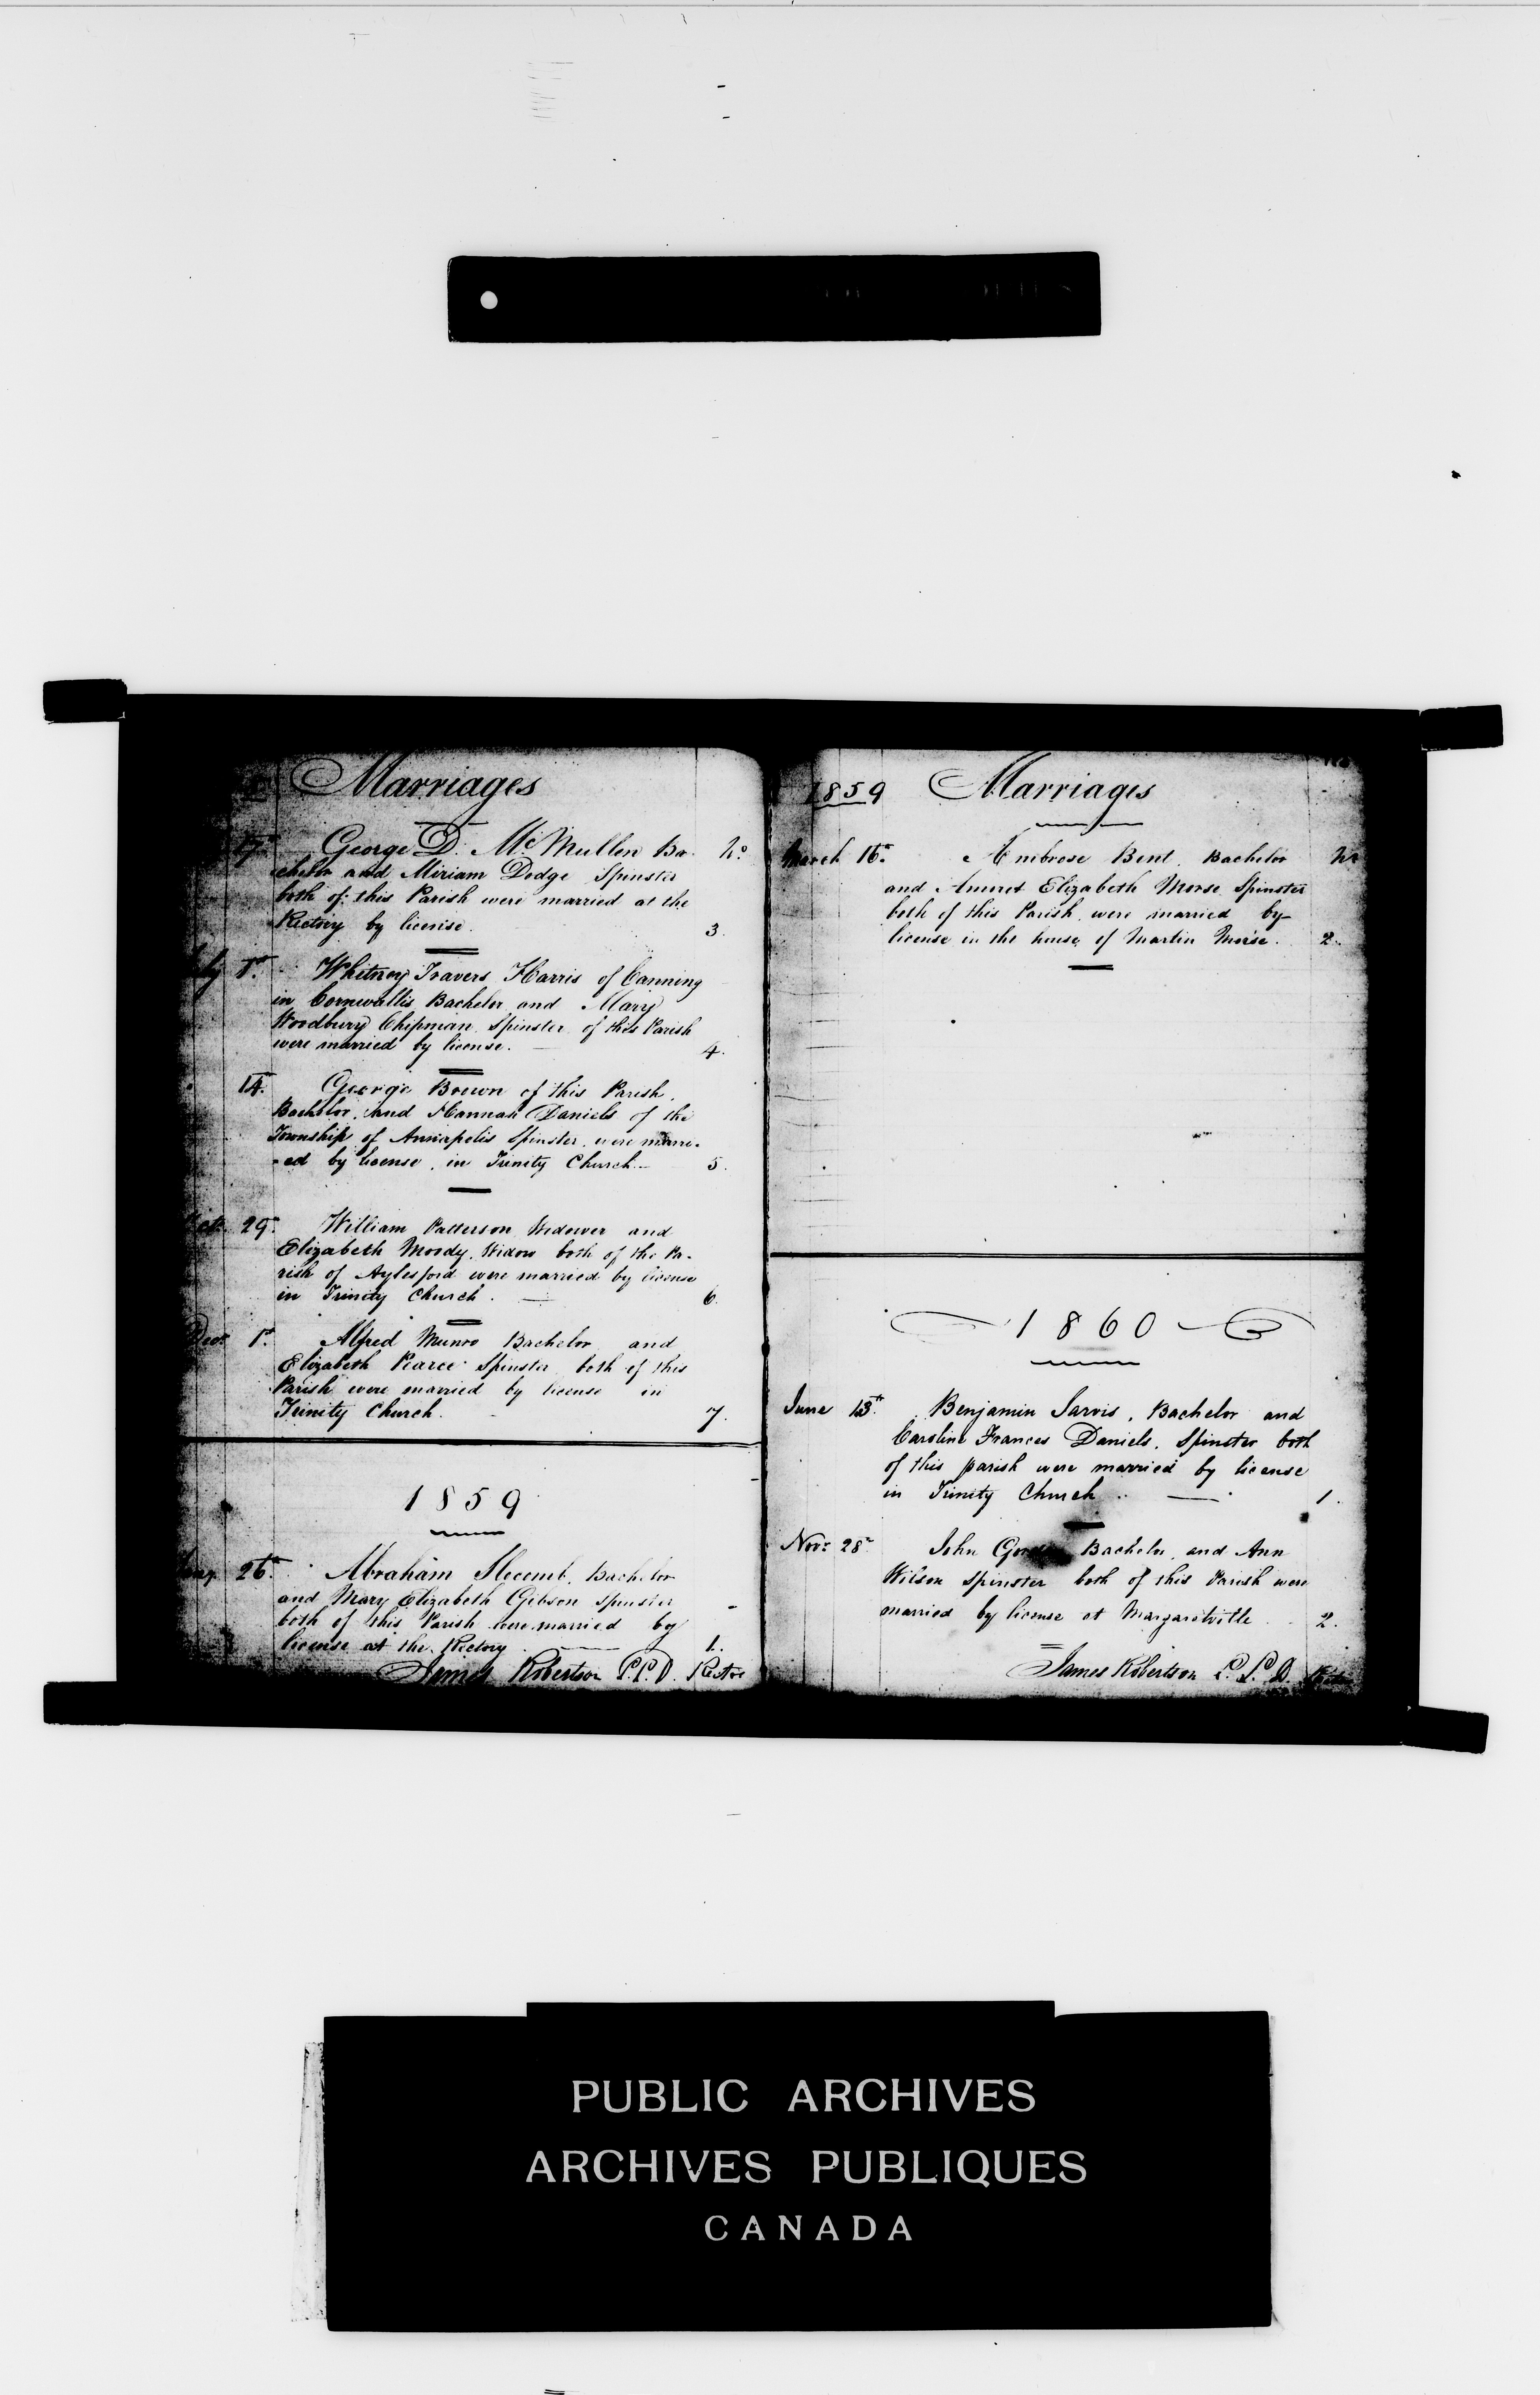 Marriages
17th George D. McMullen Ba- No.
chelor and Miriam Dodge Spinster
both of this Parish were married at the
Rectory by license. 3.
1st Whitney Travers Harris of Canning
in Cornwallis Bachelor and Mary
Woodbury Chipman Spinster of this Parish
were married by license. 4.
14th George Brown of this Parish,
Bachelor, and Hannah Daniels of the
Township of Annapolis Spinster were marri-
-ed by license, in Trinity Church. 5.
29th William Patterson Widower and
Elizabeth Moody, Widow both of the Pa-
rish of Aylesford were married by license
in Trinity Church. 6.
Decr 1st Alfred Munro Bachelor and
Elizabeth Pearce Spinster both of this
Parish were married by license in
Trinity Church. 7.
1859
26th Abraham Slocomb, Bachelor
and Mary Elizabeth Gibson Spinster
both of this Parish were married by
license at the Rectory. 1.
James Robertson Rector
1859 Marriages
March 16th Ambrose Bent, Bachelor No
and Elizabeth Morse Spinster
both of this Parish, were married by
license in the house of Martin Morse. 2.
1860
June 13th Benjamin Jarvis, Bachelor and
Caroline Frances Daniels, Spinster both
of this parish were married by license
in Trinity Church. 1.
Novr 28th John Bachelor, and Ann
Wilson Spinster both of this Parish were
married by license at Margaretville 2.
James Robertson L.L.D.
PUBLIC ARCHIVES
ARCHIVES PUBLIQUES
CANADA